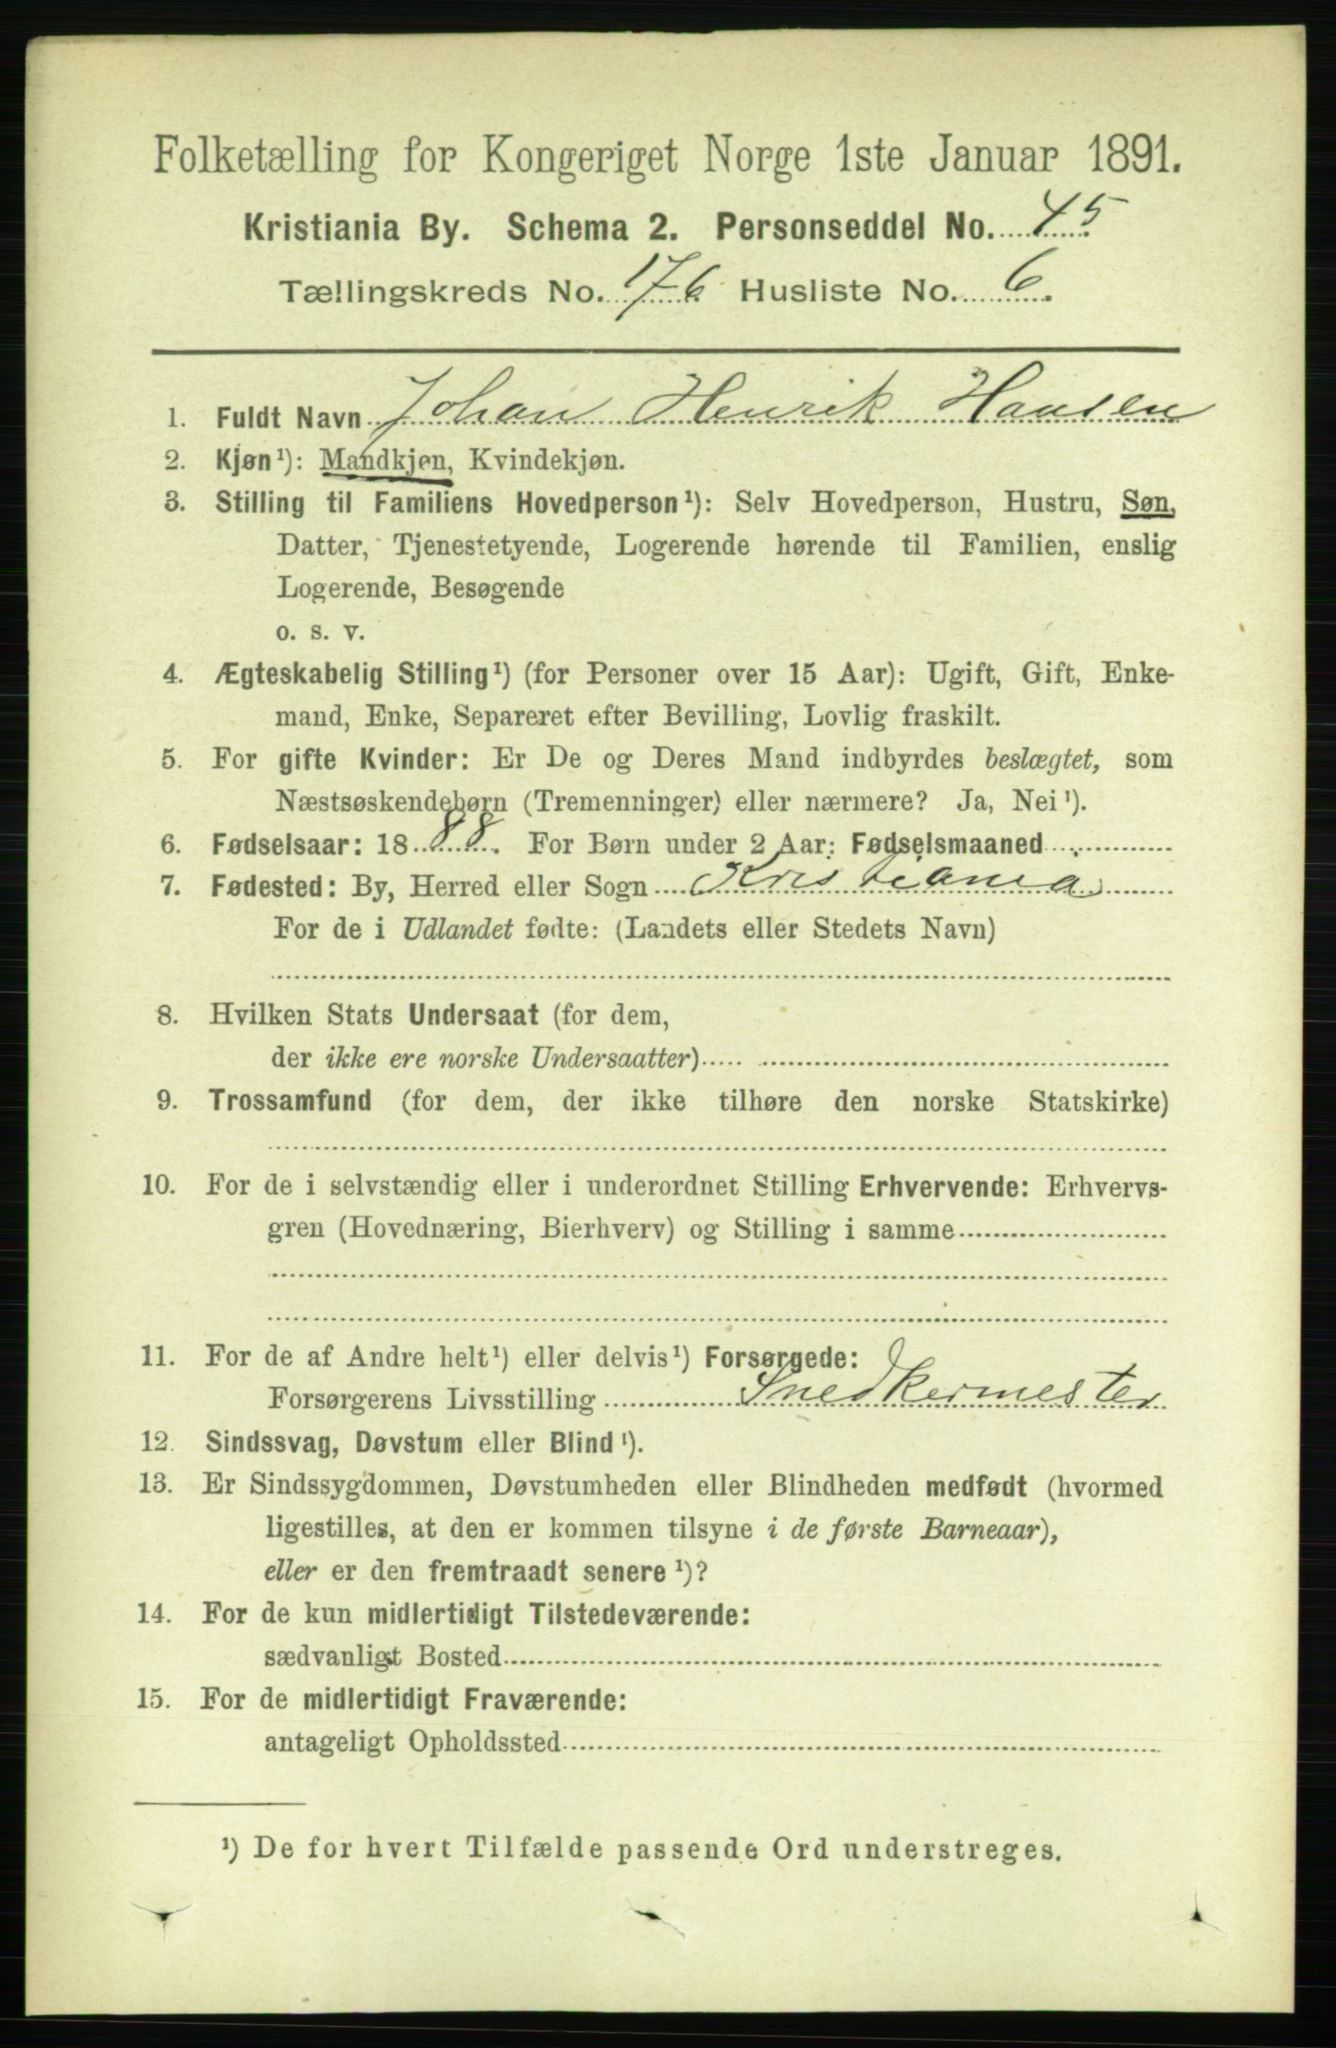 Folketælling for Kongeriget Norge 1ste Januar 1891.
Kristiania By. Schema 2. Personseddel No. 45
Tællingskreds No. 176 Husliste No. 6.
1. Fuldt Navn Johan Henrik Hansen
2. Kjøn¹): Mandkjøn, Kvindekjøn.
3. Stilling til Familiens Hovedperson¹): Selv Hovedperson, Hustru, Søn,
Datter, Tjenestetyende, Logerende hørende til Familien, enslig
Logerende, Besøgende
o. s. v.
4. Ægteskabelig Stilling¹) (for Personer over 15 Aar): Ugift, Gift, Enke-
mand, Enke, Separeret efter Bevilling, Lovlig fraskilt.
5. For gifte Kvinder: Er De og Deres Mand indbyrdes beslægtet, som
Næstsøskendebørn (Tremenninger) eller nærmere? Ja, Nei¹).
6. Fødselsaar: 1888. For Børn under 2 Aar: Fødselsmaaned
7. Fødested: By, Herred eller Sogn Kristiania
For de i Udlandet fødte: (Landets eller Stedets Navn)
8. Hvilken Stats Undersaat (for dem,
der ikke ere norske Undersaatter)
9. Trossamfund (for dem, der ikke tilhøre den norske Statskirke)
10. For de i selvstændig eller i underordnet Stilling Erhvervende: Erhvervs-
gren (Hovednæring, Bierhverv) og Stilling i samme
11. For de af Andre helt¹) eller delvis¹) Forsørgede:
Forsørgerens Livsstilling Snedkermester
12. Sindssvag, Døvstum eller Blind¹).
13. Er Sindssygdommen, Døvstumheden eller Blindheden medfødt (hvormed
ligestilles, at den er kommen tilsyne i de første Barneaar),
eller er den fremtraadt senere¹)?
14. For de kun midlertidigt Tilstedeværende:
sædvanligt Bosted
15. For de midlertidigt Fraværende:
antageligt Opholdssted
¹) De for hvert Tilfælde passende Ord understreges.